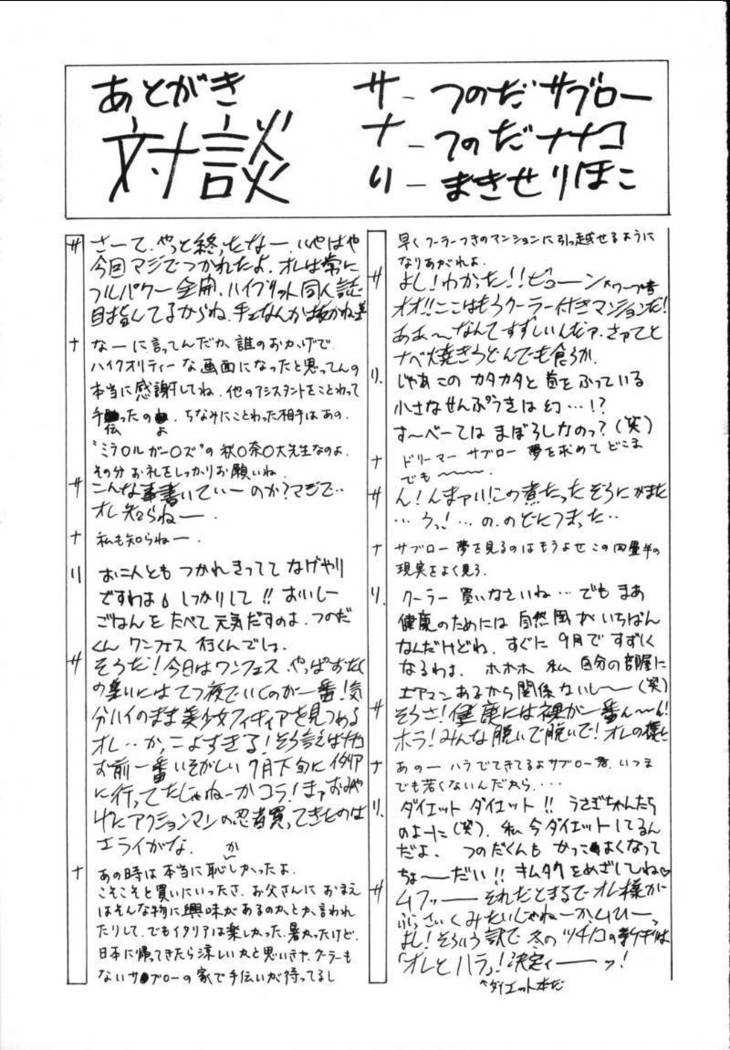 あとがき
対談
サ - つのだサブロー
ナ - つのだナナコ
り - まきせりほこ
サ さーて、やっと終ったなー、いやはや
今回マジでつかれたよ、オレは常に
フルパワー全開、ハイブリット同人誌
目指してるからね、手
ナ なーに言ってんだか、誰のおかげで
ハイクオリティーな画面になったと思ってんの
本当に感謝してね、他のアシスタントをことわって
手伝ったのよ、ちなみにことわった相手はあの、
"ミラ○ルガー○ズ"の秋○奈○大先生なのよ、
その分お礼をしっかりお願いね
サ こんな事書いていーのか?マジで…
オレ知らねー、
ナ 私も知らねー、
り お二人ともつかれきってて なげやり
ですわよ。しっかりして!! おいしー
ごはんをたべて元気だすのよ、つのだ
くん ワンフェス 行くんでしょ、
サ そうだ!今日はワンフェス やっぱおたく
の集いにはてつ夜でいくのが一番!気
分ハイのまま美少女フィギュアを見つめる
オレ‥かっこよすぎる!そう言えば
お前一番いそがしい7月下旬にイタリア
に行ってたじゃねーかコラ!まァおみや
げにアクションマンの忍者買ってきたのは
エライがな、
ナ あの時は本当に恥かしかったよ、
こそこそと買いにいったさ、お父さんに おまえ
はそんな物に興味があるのか、とか言われ
たりして、でもイタリアは楽しかった、暑かったけど、
日本に帰ってきたら涼しい
ないサブローの家で手伝いが待ってるし
早くクーラーつきのマンションに引っ越せるように
なりあがれよ、
サ よし!わかった!!ビューン×ワープ音
オオ!!ここはもうクーラー付きマンションだ!
ああ〜なんてすずしいんだァ、さァてと
ナベ焼きうどんでも食うか、
り じゃあこの カタカタと首をふっている
小さなせんぷうきは幻…!?
す〜べーては まぼろしなのっ?(笑)
ナ ドリーマー サブロー 夢を求めて どこま
でも〜〜〜、
サ ん!んまァい!この煮たったぞうにがまた
…うっ!…の、のどにつまった‥
ナ サブロー 夢を見るのはもうよせ この四畳半の
現実をよく見ろ、
り クーラー 買いなさいね… でも まあ
健康のためには自然風がいちばん
なんだけどね、すぐに 9月ですずしく
なるわよ、ホホホ 私 自分の部屋に
エアコンあるから関係ないし〜(笑)
サ そうさ!健康には裸が一番ん〜ん!
ホラ!みんな脱いで脱いで!オレの様に
ナ あのー ハラでてきてるよサブロー君、いつま
でも若くないんだから、・・・
り ダイエット ダイエット!! うさぎちゃんたち
のよーに(笑)、私今ダイエットしてるん
だよ、 つのだくんも かっこよくなって
ちょーーだい!! キムタクをめざしてね♡
サ ムフッーー それだとまるでオレ様が
ぶさいくみたいじゃねーかムヒーっ
よし!そういう訳で 冬のツチノコの新刊は
「オレとハラっ!」決定ィーーッ!
^ダイエット本だ